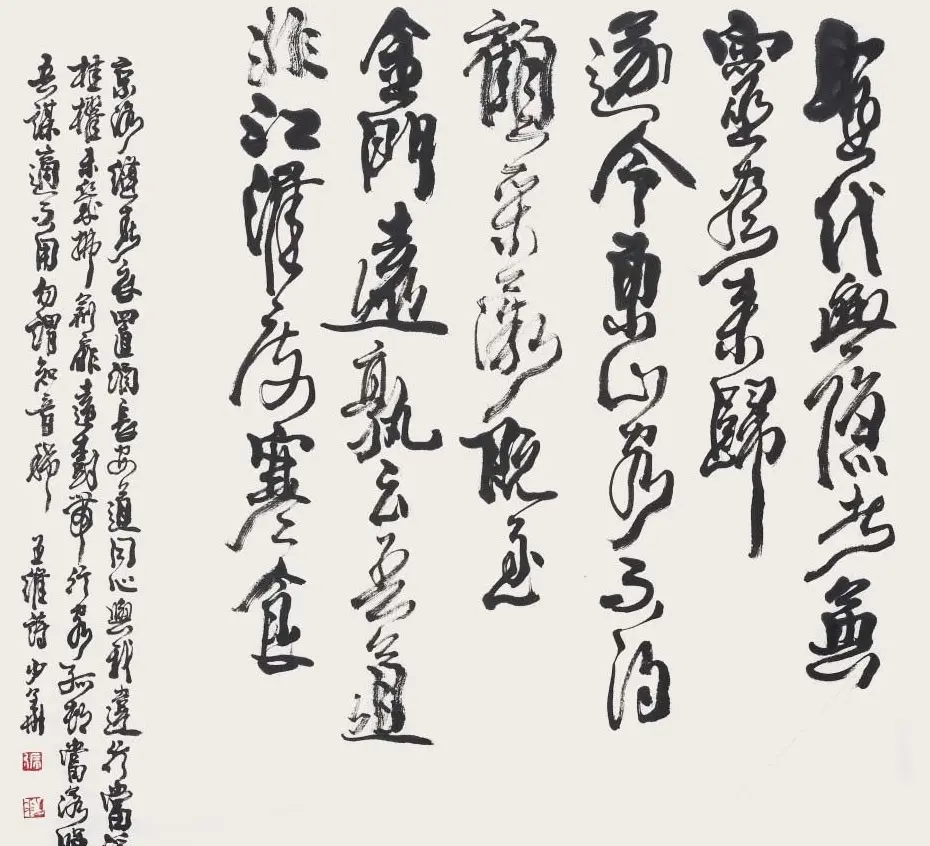 聖代無隱者英
靈盡來歸
遂令東山客不得
顧采薇既至
金門遠孰云吾道
非江淮度寒食
京洛縫春衣置酒長安道同心與我違行當浮
桂櫂未幾拂荊扉遠樹帶行客孤邨當落暉
吾謀適不用勿謂知音稀 王維詩 少華